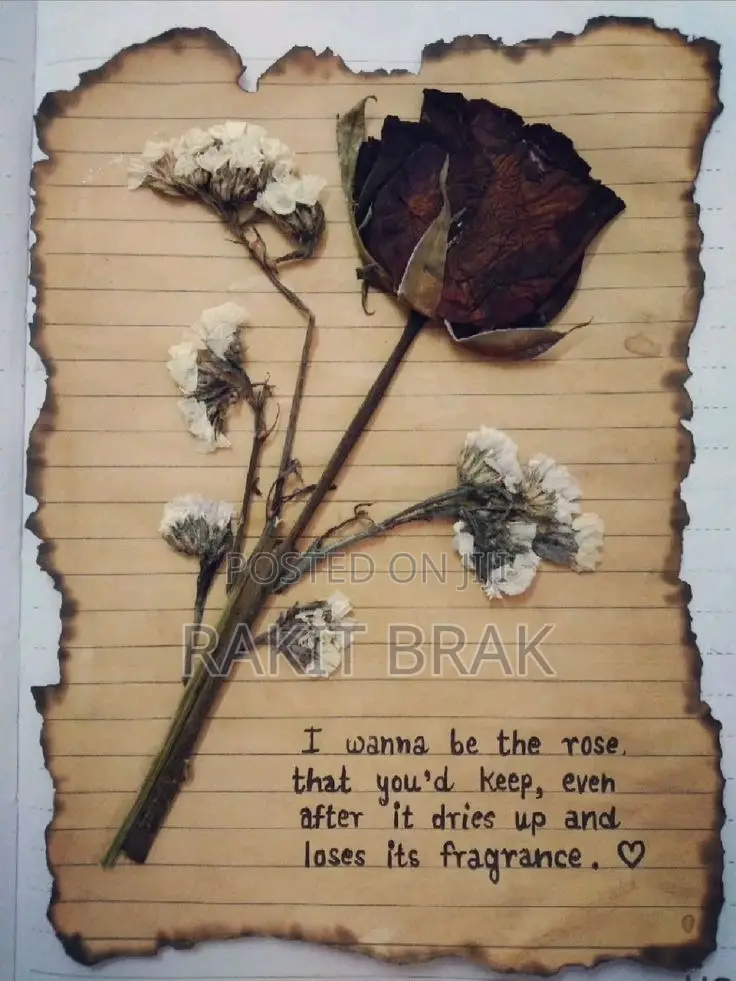 POSTED ON JIJI
RAKIT BRAK
I wanna be the rose.
that you'd keep, even
after it dries up and
loses its fragrance. ♡